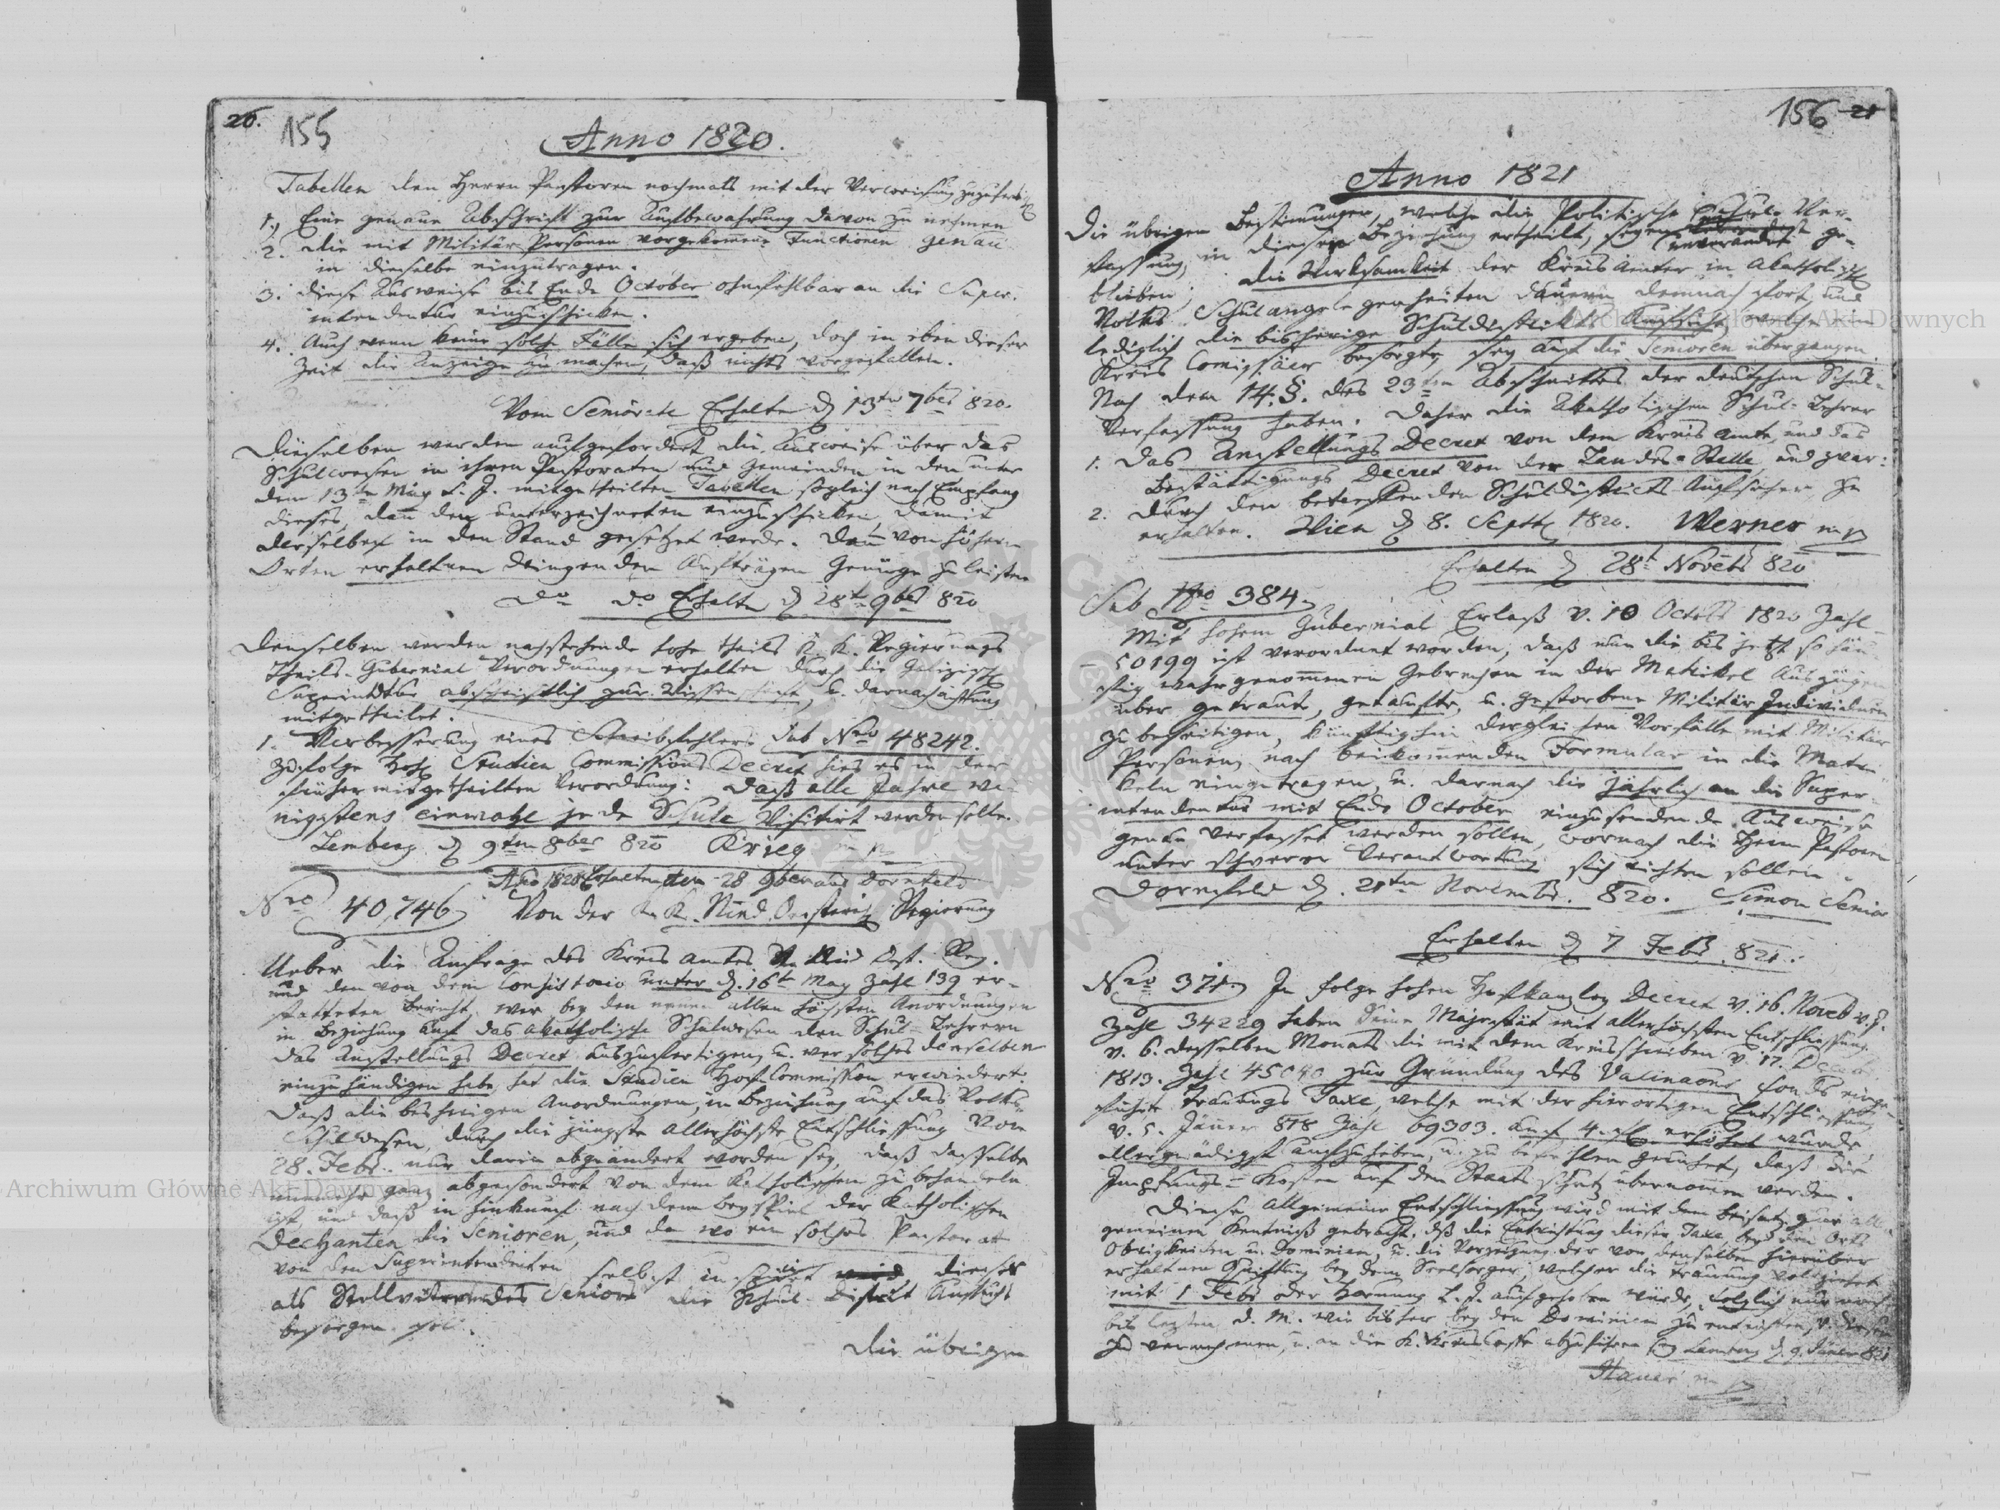 26. 155
Anno 1820.
Tabellen den Herrn Pastoren nochmals mit der
1., Eine genaue Abschrift zur Aufbewahrung davon zu nehmen
2. die mit Militär Personen vorgekommene Functionen genau
in dieselbe einzutragen.
3. diese Ausweise bis Ende October ohnfehlbar an die Super-
intendentur einzuschicken.
4. Auch wenn keine solche Fälle sich ergeben, doch in eben dieser
Zeit die Anzeige zu machen, daß nichts vorgefallen.
Vom Seniorate Erhalten d 13ten 7ber 820.
Dieselben werden aufgefordert die Ausweise über das
Schulwesen in ihren Pastoraten und Gemeinden in den unter
dem 13ten May l. J. mitgetheilten Tabellen sogleich nach Empfang
dieses, dem unterzeichneten einzuschicken, damit
derselbe in den Stand gesetzt werde, denn von höhern
Orten erhaltenen dringenden Aufträgen Genüge zu leisten
do do Erhalten d 28t 9ber 820
Denselben werden nachstehende hohe theils K. K. Regierungs
Theils Gubernial Verordnungen erhalten durch die
abschriftlich zur Wissenschaft, u. darnachachtung
mitgetheilet.
1. Verbesserung eines Schreibfehlers Sub Nro 48242.
Zufolge Hoh. Studien Commissions Decret hies es in der
früher mitgetheilten Verordnung: daß alle Jahre we-
nigstens einmahl jede Schule Visitirt werden solle.
Lemberg d 9ten 8ber 820 Krieg
Ano 1820 Erhalten den 28 9ber aus Dornfeld
Nro 40,746 Von der K. K. Nied. Oesterreich. Regierung
Ueber die Anfrage des Kreis amtes
und den von dem Consistorio unter d. 16t May Zahl 139 er-
statteten Bericht, wer bey den neuen allerhöchsten Anordnungen
in Beziehung auf das akatholische Schulwesen den Schul-Lehrern
das Anstellungs Decret auszufertigen, u. wer solches denselben
einzuhändigen habe, hat die Studien Hof-Commission erwiedert:
daß die bisherigen Anordnungen, in Beziehung auf das Volks-
Schulwesen, durch die jüngste Allerhöchste Entschließung vom
28. Febr. nur darin abgeändert worden sey, daß dasselbe
nunmehr ganz abgesondert von dem Katholischen zu behandeln
ist, und daß in Hinkunft nach dem Beyspiel der Katholischen
Dechanten die Senioren, und da wo ein solches Pastorat
von dem Superintendenten selbst dieses
als Stellvertreter des Seniors die Schul-District Aufsicht
besorgen soll.
Die übrigen
156 21
Anno 1821
Die übrigen Bestimmungen, welche die Politische Schule Ver-
fassung, in dieser Beziehung ertheilt, seyen unverändert ge-
blieben; die Wirksamkeit der Kreisämter in Akatholische
Volks Schulangelegenheiten dauern demnach fort, und
lediglich die bisherige Schuldistrikts Aufsicht welche ein
Kreis Comissär besorgte, sey auf die Senioren übergangen.
Nach dem 14. §. des 23ten Abschnittes der deutschen Schul-
Verfassung haben. Daher die Akatholischen Schul-Lehrer
1. Das Anstellungs Decret von dem Kreis Amte, und das
Bestättigungs Decret von der Landes-Stelle, und zwar:
2. durch den betreffenden Schuldistrikts Aufseher zu
erhalten. Wien d 8. Septb. 1820. Werner mp
Erhalten d 28t Novebr 820
Sub Nro 384.
Mit hohem Gubernial Erlaß v. 10 Octob 1820 Zahl
50199 ist verordnet worden, daß um die bis jetzt so häu-
fig wahrgenommenen Gebrechen in der Matrikel Auszügen
über getraute, getaufte, u. gestorbene Militär Individuen
zu beseitigen, künftighin dergleichen Vorfälle mit Militär
Personen, nach beikommenden Formular in die Matri-
keln eingetragen, u. darnach die jährlich an die Super-
intendentur mit Ende October einzusendende Ausweise
verfasset werden sollen, wornach die Herrn Pastoren
unter schwerer Verantwortung sich richten sollen.
Dornfeld d. 21ten Novembr. 820. Simon Senior
Erhalten d 7 Febr. 821.
Nro 371. In folge hohen Hofkanzley Decret v. 16. Noveb v. J.
Zahl 34229 haben Seine Majestät mit allerhöchsten Entschliessung
v. 6. desselben Monats die mit dem Kreisschreiben v. 17. Decebr
1813. Zahl 45040 zur Gründung des Vaccinations Fonds einge-
führte Trauungs Taxe, welche mit der hierortigen Entschliessung
v. 5. Jäner 818 Zahl 69303. auf 4. erhöhet wurde,
allergnädigst aufzuheben, u. zu befehlen geruhet, daß die
Impfungs-Kosten auf den Staatsschatz übernommen werden.
Diese Allgemeine Entschliessung wird mit dem Beisatz zur all-
gemeinen Kentniß gebracht, daß die Entrichtung dieser Taxe bey den Orts
Obrigkeiten u. Dominien, u. die Vorzeigung der von denselben hierüber
erhaltenen Quittung bey dem Seelsorger, welcher die Trauung vollziehet
mit 1 Febr oder Hornung l. J. aufgehoben würde, folglich nur noch
bis letzten d. M. wie bisher bey den Dominien zu entrichten, v. diesen
zu vernehmen, u. an die K. Kreis Casse abzuführen sey Lemberg d. 9. Jäner 821
Hauer mp